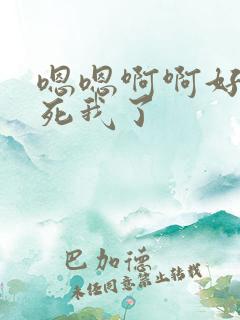 嗯嗯啊啊好
死我了
巴加德
未经同意禁止转载